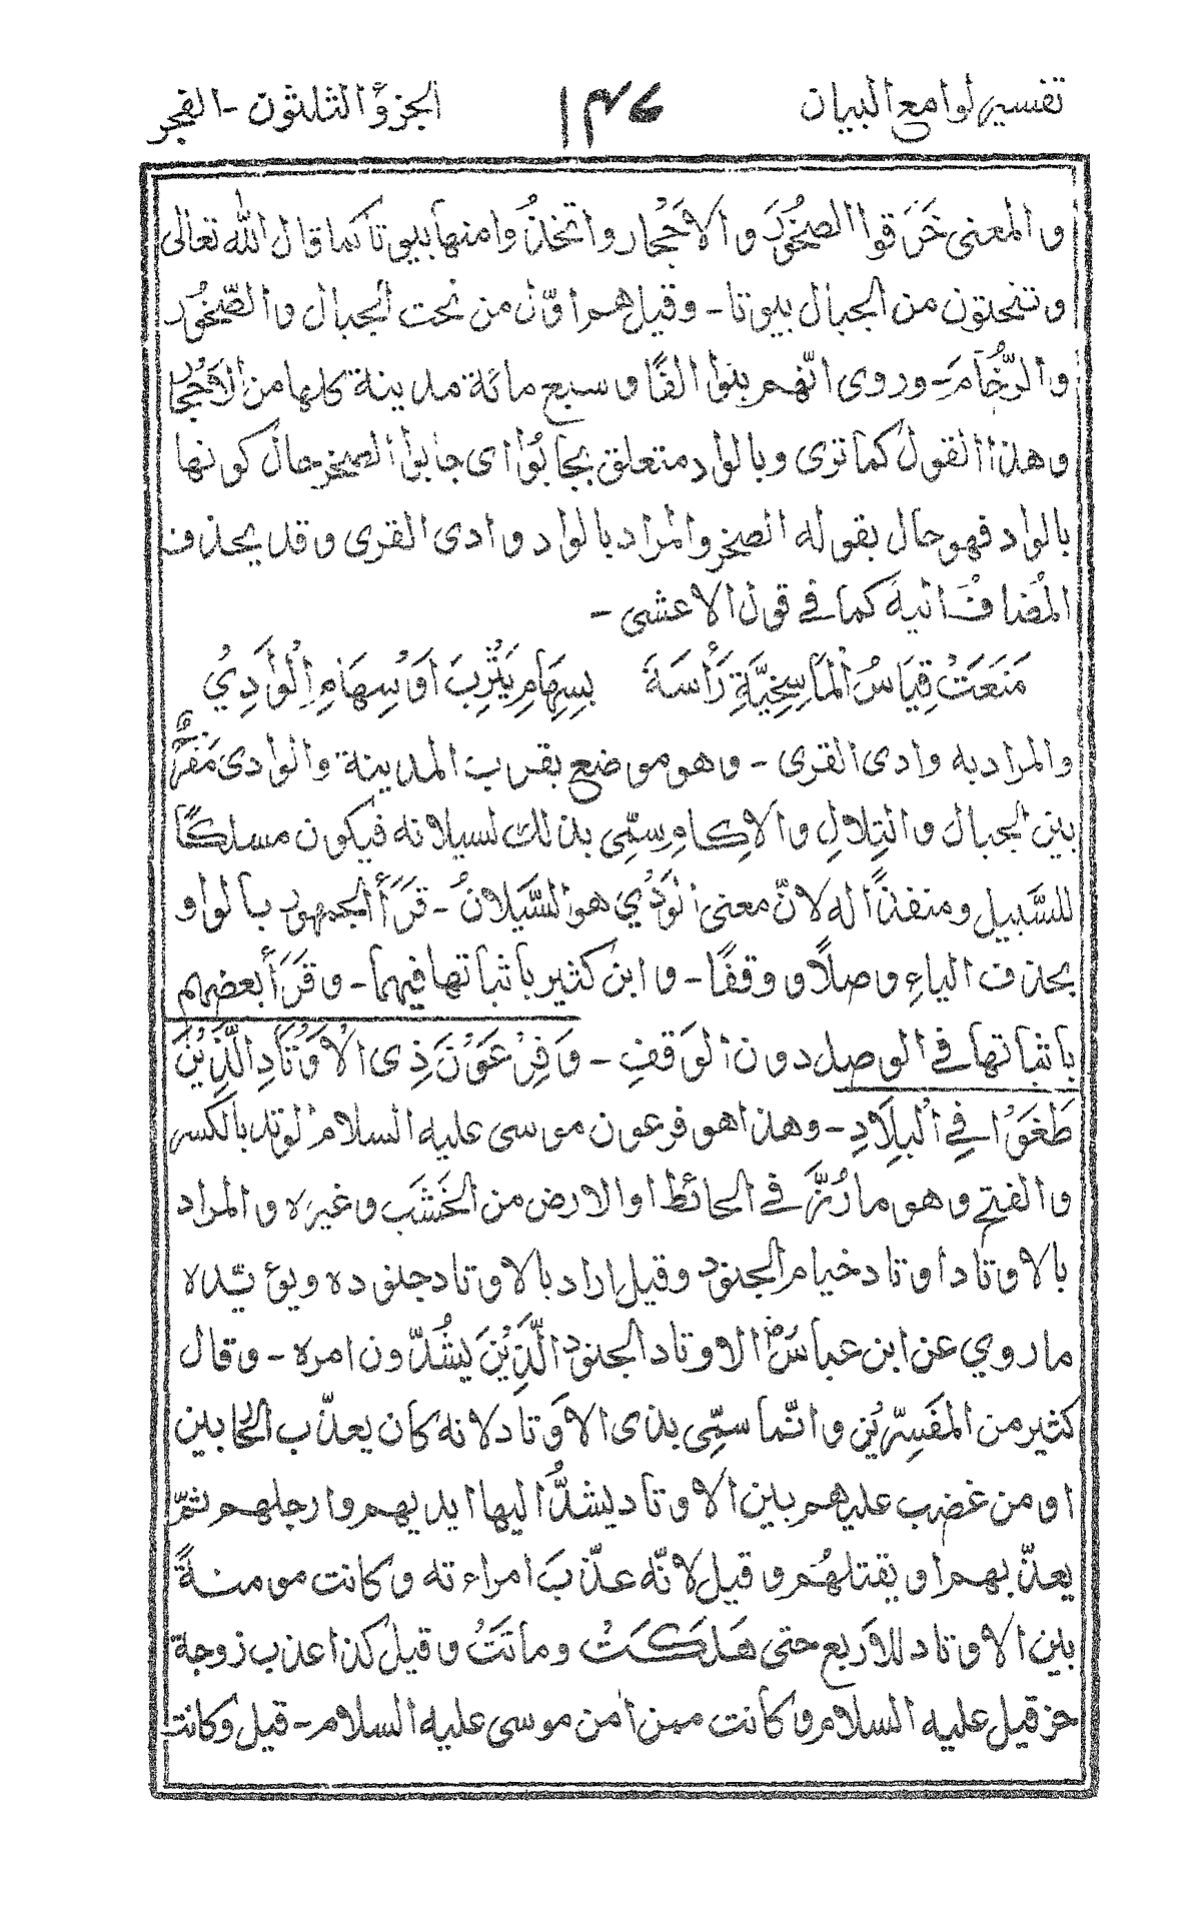 تفسير لوامع البيان ١٣٤ الجزؤ الثلثون - الفجر
والمعنى خَرَقوا الصُّخُوْرَ والاَحْجار واتخذُوا منها بيوتا كما قال الله تعالى
وتنحتون من الجبال بيوتا - وقيل هم اوّل من نحت الجبال والصّخُوْر
والرُّخَامَ - وروى انّهم بنوا الفًا وسبع مائة مدينة كلها من الاَحْجُار
وهذا القول كما ترى وبالواد متعلق بجابُوا اى جابوا الصخر حال كونها
بالواد فهو حال بقوله الصخر والمراد بالواد وادى القرى وقد يحذف
المُضاف اليه كما في قول الاعشى -
مَنَعَتْ قِيَاسُ الْمَاسِخِيَّةِ رَأْسَهَ بِسِهَامِ يَثْرِبَ اَوْ سِهَامِ الْوَادِيْ
والمراد به وادى القرى - وهو موضع بقرب المدينة والوادى مَفْرَجٌ
بين الجبال والتِلالِ والاكام سمّى بذلك لسيلانه فيكون مسلكًا
للسَّبيل ومنفذًا له لانّ معنى الوَدْيْ هو السَّيَلانُ - قَرَأَ الجمهور بالواو
بحذف الياءِ وصلًا ووقفًا - وابن كثير باثباتها فيهما - وقَرَأَ بعضهم
باثباتها في الوصل دون الوَقفِ - وَفِرْعَوْنَ ذِى الْاَوْتَادِ الَّذِيْنَ
طَغَوْا فِي الْبِلَادِ - وهذا هو فرعون موسى عليه السلام الوتد بالكسر
والفتح وهو ما رُزَّ في الحائط او الارض من الخَشَب وغيره والمراد
بالاوتاد اوتاد خيام الجنود وقيل اراد بالاوتاد جنوده ويؤيّده
ما روي عن ابن عباسؓ الاوتاد الجنود الّذِيْنَ يشُدّون امره - وقال
كثير من المفَسِّرِيْن وانّما سمّى بذى الاَوتاد لانه كان يعذّب الجابين
او من غضب عليهم بين الاوتاد ليشدَّ اليها ايديهم وارجلهم ثمّ
يعذّبهم او يقتلهُم وقيل لانّه عذّبَ امراءته وكانت مومنةً
بين الاوتاد للاربع حتى هَلَكَتْ وماتَتْ وقيل كذا عذب زوجة
حزقيل عليه السلام وكانت ممن اٰمن موسى عليه السلام - قيل وكانت